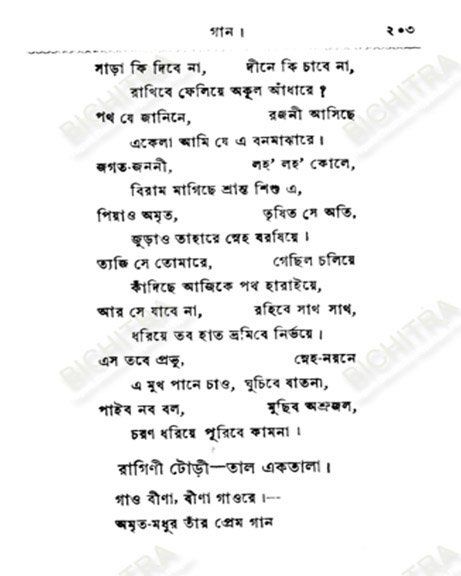 গান । ২০৩
সাড়া কি দিবে না, দীনে কি চাবে না,
রাখিবে ফেলিয়ে অকূল আঁধারে ?
পথ যে জানিনে, রজনী আসিছে
একেলা আমি যে এ বনমাঝারে ।
জগত-জননী, লহ' লহ' কোলে,
বিরাম মাগিছে শ্রান্ত শিশু এ,
পিয়াও অমৃত, তৃষিত সে অতি,
জুড়াও তাহারে স্নেহ বরষিয়ে ।
ত্যজি সে তোমারে, গেছিল চলিয়ে
কাঁদিছে আজিকে পথ হারাইয়ে,
আর সে যাবে না, রহিবে সাথ সাথ,
ধরিয়ে তব হাত ভ্রমিবে নির্ভয়ে ।
এস তবে প্রভু, স্নেহ-নয়নে
এ মুখ পানে চাও, ঘুচিবে যাতনা,
পাইব নব বল, মুছিব অশ্রুজল,
চরণ ধরিয়ে পূরিবে কামনা ।
রাগিণী টোড়ী—তাল একতালা ।
গাও বীণা, বীণা গাওরে ।—
অমৃত-মধুর তাঁর প্রেম গান
BICHITRA
BICHITRA
BICHITRA
BICHITRA
BICHITRA
BICHITRA